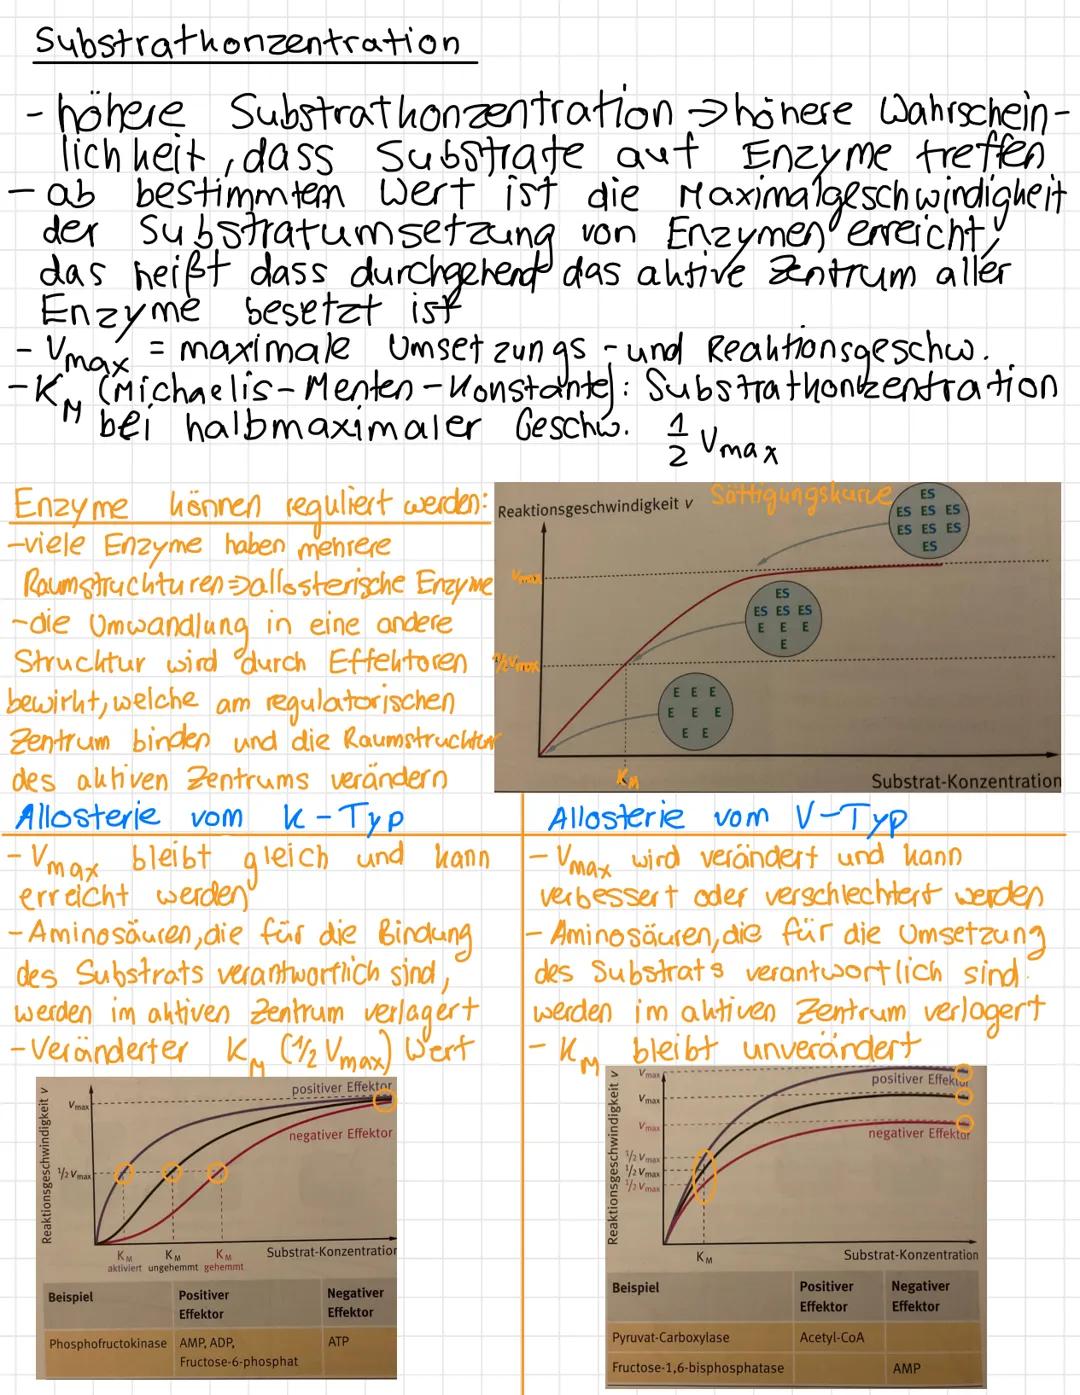 Substratkonzentration
- höhere Substratkonzentration => höhere Wahrschein-
lichkeit, dass Substrate auf Enzyme treffen
- ab bestimmtem Wert ist die Maximalgeschwindigkeit
der Substratumsetzung von Enzymen erreicht,
das heißt dass durchgehend das aktive Zentrum aller
Enzyme besetzt ist
- Vmax = maximale Umsetzungs - und Reaktionsgeschw.
- KM (Michaelis-Menten-Konstante): Substratkonzentration
bei halbmaximaler Geschw. 1/2 Vmax
Enzyme können reguliert werden:
- viele Enzyme haben mehrere
Raumstruckturen => allosterische Enzyme
- die Umwandlung in eine andere
Strucktur wird durch Effektoren
bewirkt, welche am regulatorischen
Zentrum binden und die Raumstrucktur
des aktiven Zentrums verändern
Reaktionsgeschwindigkeit v
Sättigungskurve
ES
ES ES ES
ES ES ES
ES
Vmax
ES
ES ES ES
E E E
E
1/2 Vmax
E E E
E E E
E E
KM
Substrat-Konzentration
Allosterie vom K-Typ
- Vmax bleibt gleich und kann
erreicht werden
- Aminosäuren, die für die Bindung
des Substrats verantwortlich sind,
werden im aktiven Zentrum verlagert
- Veränderter KM (1/2 Vmax) Wert
Reaktionsgeschwindigkeit v
positiver Effektor
Vmax
negativer Effektor
1/2 Vmax
KM KM KM
aktiviert ungehemmt gehemmt
Substrat-Konzentration
Beispiel Positiver Effektor Negativer Effektor
Phosphofructokinase AMP, ADP, ATP
Fructose-6-phosphat
Allosterie vom V-Typ
- Vmax wird verändert und kann
verbessert oder verschlechtert werden
- Aminosäuren, die für die Umsetzung
des Substrats verantwortlich sind.
werden im aktiven Zentrum verlagert
- KM bleibt unverändert
Reaktionsgeschwindigkeit v
Vmax
positiver Effektor
Vmax
Vmax
negativer Effektor
1/2 Vmax
1/2 Vmax
1/2 Vmax
KM
Substrat-Konzentration
Beispiel Positiver Effektor Negativer Effektor
Pyruvat-Carboxylase Acetyl-CoA
Fructose-1,6-bisphosphatase AMP